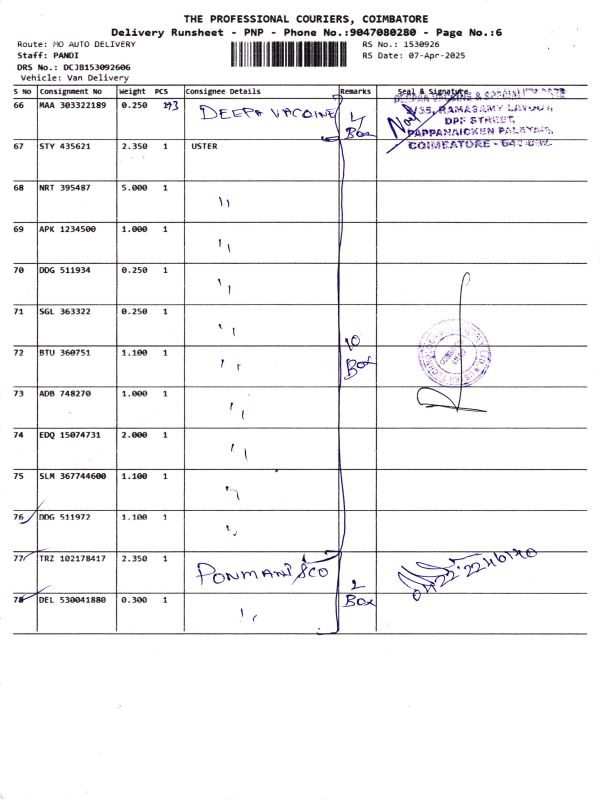 THE PROFESSIONAL COURIERS, COIMBATORE
Delivery Runsheet - PNP - Phone No.:9047080280 - Page No.:6
Route: MO AUTO DELIVERY RS No.: 1530926
Staff: PANDI RS Date: 07-Apr-2025
DRS No.: DCJB153092606
Vehicle: Van Delivery
S No Consignment No Weight PCS Consignee Details Remarks Seal & Signature
66 MAA 303322189 0.250 DEEPA VACCINE Box
RAMASAMY LAYOUT
DPF STREET,
PAPPANAICKEN PALAYAM,
COIMBATORE -
67 STY 435621 2.350 1 USTER
68 NRT 395487 5.000 1 "
69 APK 1234500 1.000 1 "
70 DDG 511934 0.250 1 "
71 SGL 363322 0.250 1 "
72 BTU 360751 1.100 1 " 10 Box
73 ADB 748270 1.000 1 "
74 EDQ 15074731 2.000 1 "
75 SLM 367744600 1.100 1 "
76 DDG 511972 1.100 1 "
77 TRZ 102178417 2.350 1 PONMANI &CO 2 Box
78 DEL 530041880 0.300 1 "